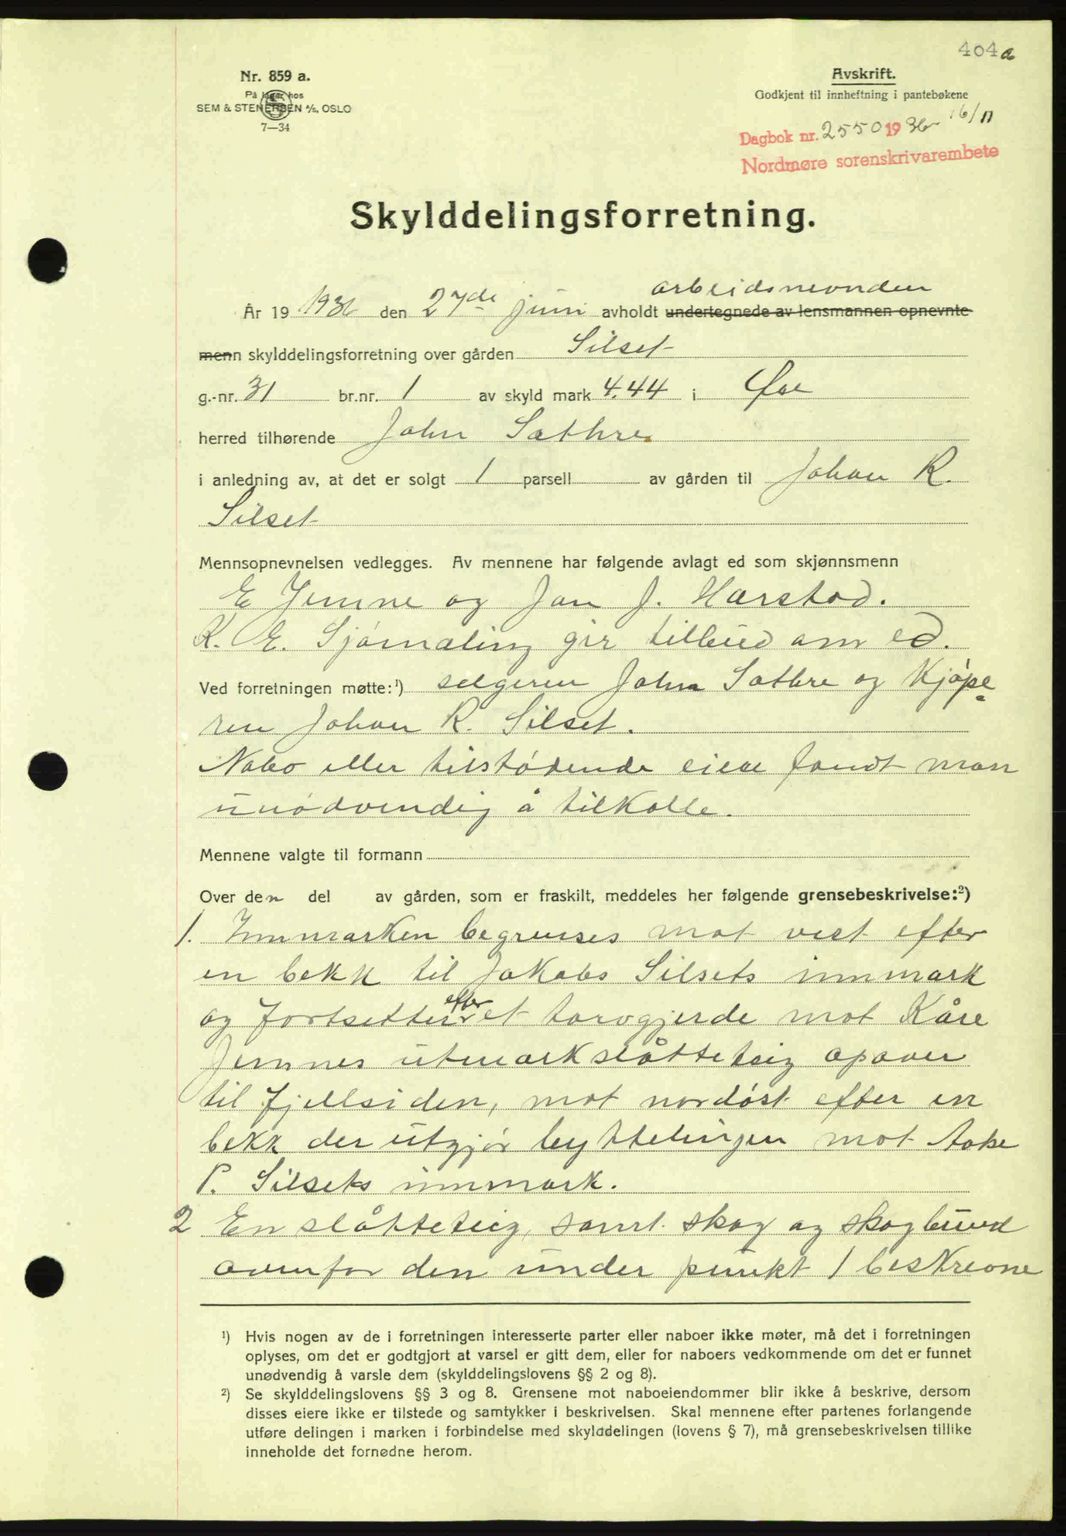 404a
Nr. 859 a.
På lager hos
SEM & STENERSEN A/S, OSLO
7—34
Avskrift.
Godkjent til innheftning i pantebøkene
Dagbok nr. 2550 1936 16/11
Nordmøre sorenskrivarembete
Skylddelingsforretning.
arbeidsnevnden
År 19 1936 den 27de juni avholdt undertegnede av lensmannen opnevnte
menn skylddelingsforretning over gården Silset
g.-nr. 31 br.nr. 1 av skyld mark 4.44 i Øre
herred tilhørende John Sæthre
i anledning av, at det er solgt 1 parsell av gården til Johan R.
Silset
Mennsopnevnelsen vedlegges. Av mennene har følgende avlagt ed som skjønnsmenn
E Jemne og Jon J. Harstad.
K. E. Sjømæling gir tilbud om ed.
Ved forretningen møtte:¹) selgeren John Sæthre og Kjøpe
ren Johan R. Silset.
Nabo eller tilstødende eiere fandt man
unødvendig å tilkalle.
Mennene valgte til formann
Over den del av gården, som er fraskilt, meddeles her følgende grensebeskrivelse:²)
1. Innmarken begrenses mot vest efter
en bekk til Jakobs Silsets innmark
efter
og fortsetter et torvgjerde mot Kåre
Jemnes utmarkslåtteteig opover
til fjellsiden, mot nordøst efter en
bekk der utgjør byttelinjen mot
P. Silsets innmark.
2 En slåtteteig, samt skog og skogbund
ovenfor den under punkt 1 beskrevne
¹) Hvis nogen av de i forretningen interesserte parter eller naboer ikke møter, må det i forretningen
oplyses, om det er godtgjort at varsel er gitt dem, eller for naboers vedkommende om det er funnet
unødvendig å varsle dem (skylddelingslovens §§ 2 og 8).
²) Se skylddelingslovens §§ 3 og 8. Grensene mot naboeiendommer blir ikke å beskrive, dersom
disses eiere ikke er tilstede og samtykker i beskrivelsen. Skal mennene efter partenes forlangende
utføre delingen i marken i forbindelse med skylddelingen (lovens § 7), må grensebeskrivelsen tillike
inneholde det fornødne herom.